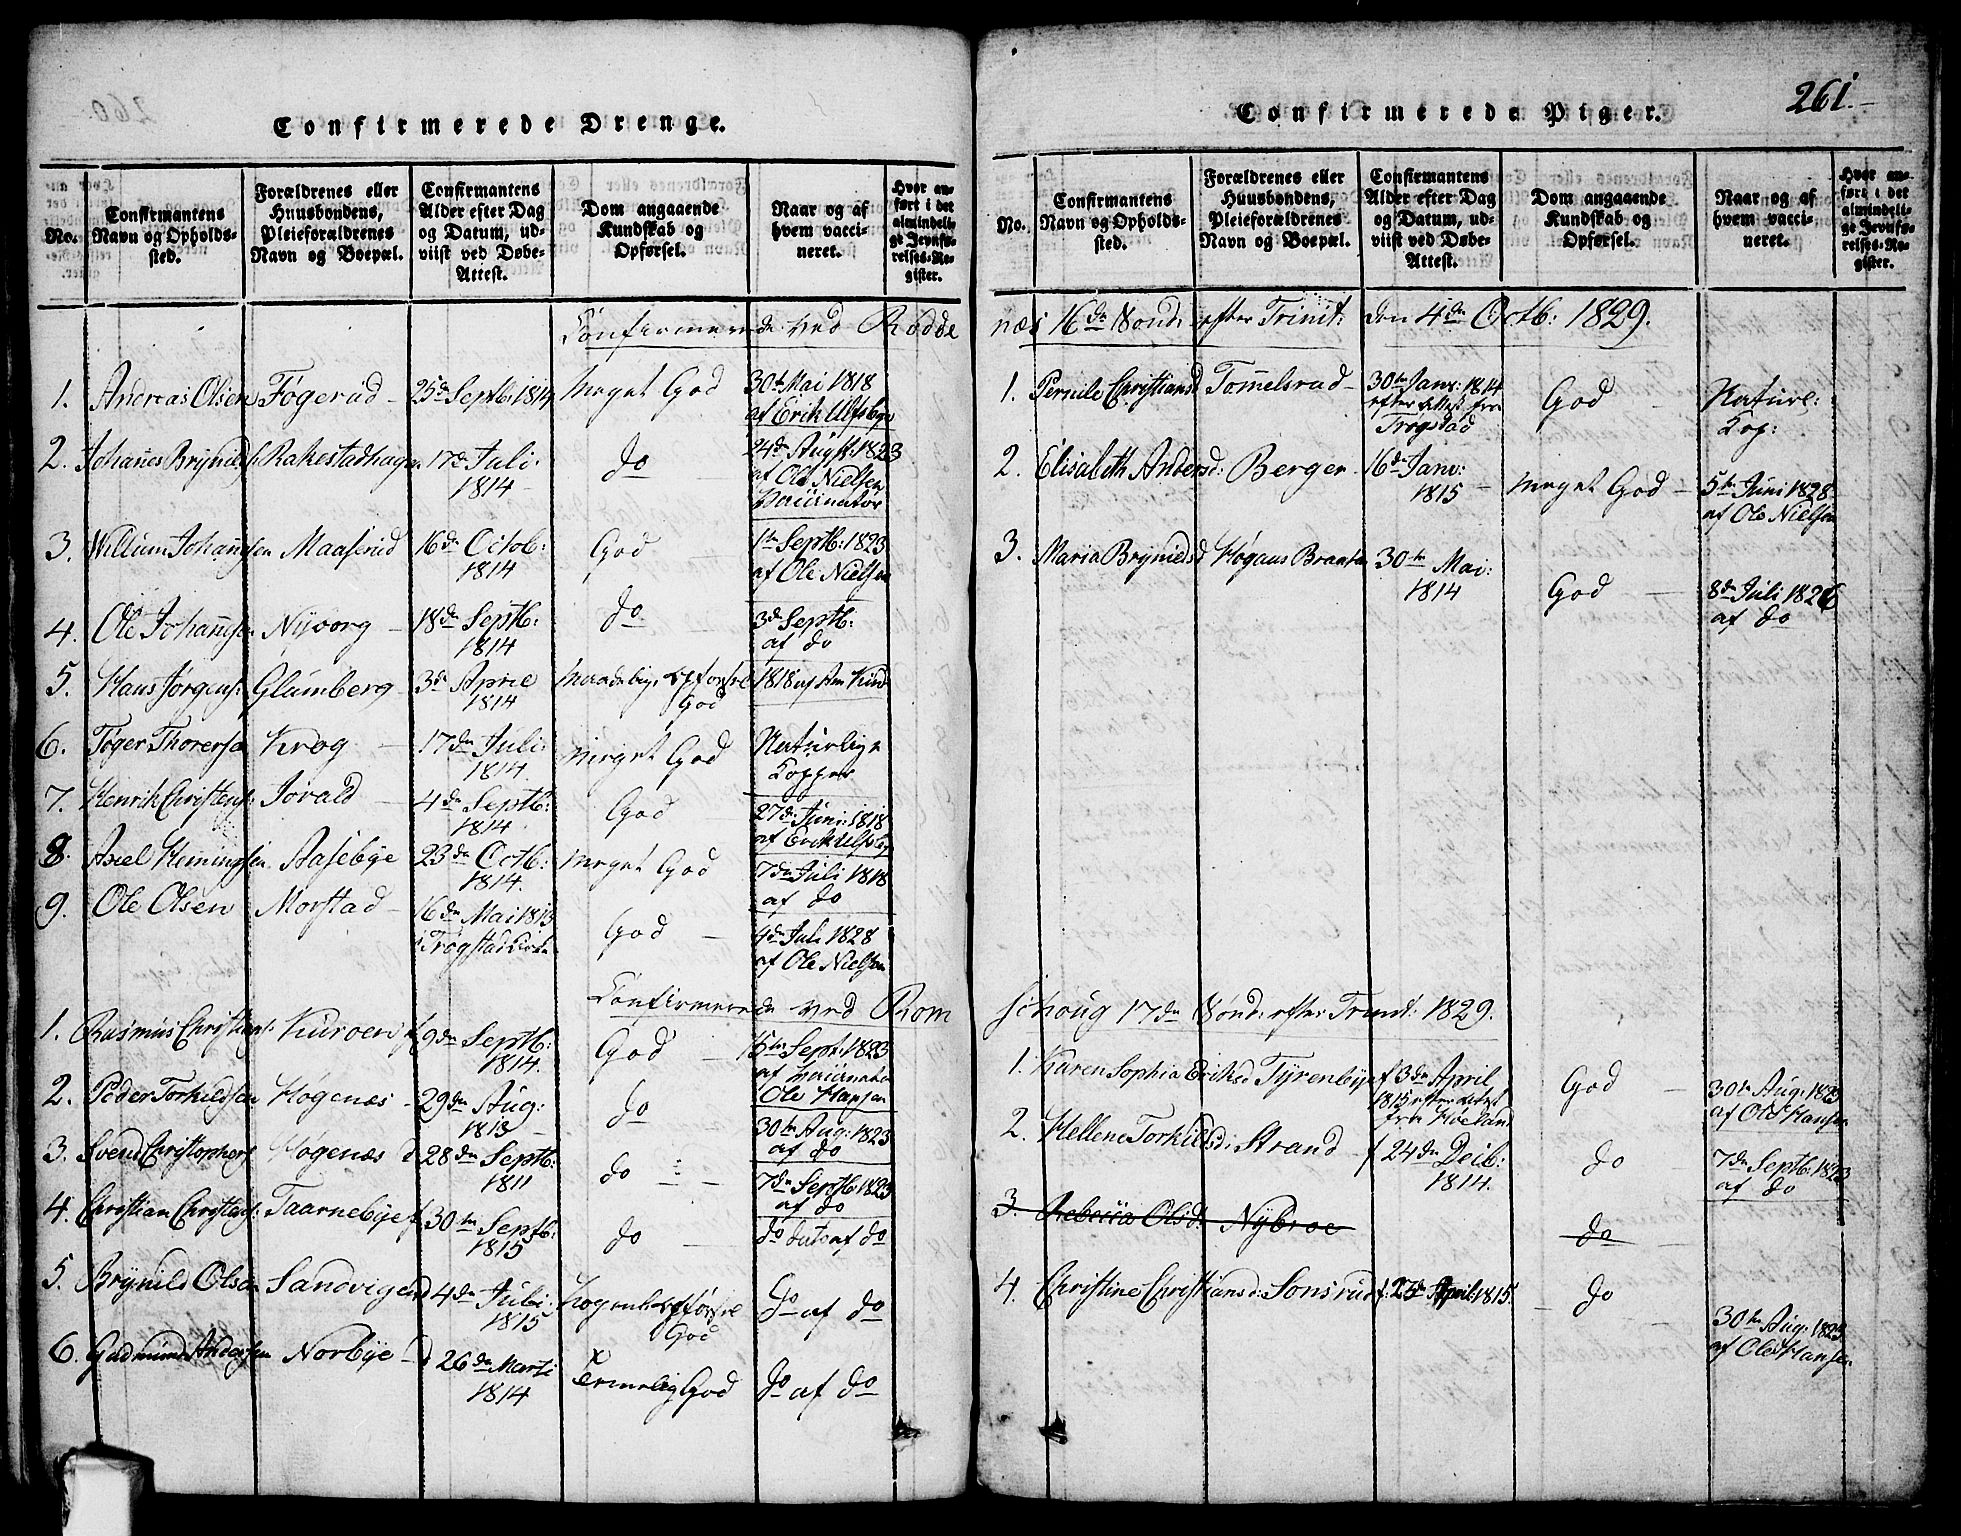 Confirmerede Drenge.
No.
Confirmantens Navn og Opholds-sted.
Forældrenes eller Huusbondens, Pleieforældrenes Navn og Boepæl.
Confirmantens Alder efter Dag og Datum, ud-viist ved Døbe-Attest.
Dom angaaende Kundskab og Opførsel.
Naar og af hvem vacci-neret.
Hvor an-ført i det almindeli-ge Jevnfø-relses-Re-gister.
Confirmerede ved Rødde
1. Andreas Olsen Føgerud 25de Septb: 1814 Meget God 30te Mai 1818
af Erik Ulfsbye
2. Johannes Brynilds: Rakestadhagen 17de Juli: 1814 do 24de Augst: 1823
af Ole Nielsen
Vaccinatør
3. Willum Johannsen Maaserud 16de Octob: 1814 God 1te Septb: 1823
af Ole Nielsen
4. Ole Johannsen Nyborg 18de Septb: 1814 do 3de Septb:
af do
5. Hans Jørgens: Glumberg 3de April 1814 God 1818 af
6. Tøger Thorersen Krog 17de Juli: 1814 Meget God Naturlige
Kopper
7. Henrik Christens: 4de Septb: 1814 God 27de Juni: 1818
af Erik Ulfsby
8. Axel Hemingsen Aasebye 23de Octb: 1814. Meget God 7de Juli 1818
af do
9. Ole Olsen Morstad 16de Mai 1813
i Trøgstad Kirke God 4de Juli 1828
af Ole Nielsen
Confirmerede ved Rom
1. Rasmus Christians: Kuroen f 9de Septb: 1814. God 15te Sept: 1823
af Vaccinatør
Ole Hansen
2. Peder Torkildsen Høgenæs 29de Aug: 1813 do 30te Aug: 1823
af do
3. Svend Christophers Høgenæs 28de Septb: 1811 do 7de Septb: 1823
af do
4. Christian Christens: Taarnebye f 30te Septb: 1815 do do dato af do
5. Brynild Olsen Sandvigen 4de Juli: 1815 God do af do
6. Gudmund Andersen Norbye 26de Marti 1814 God do af do
261.
Confirmerede Piger.
No.
Confirmantens Navn og Opholds-sted.
Forældrenes eller Huusbondens, Pleieforældrenes Navn og Boepæl.
Confirmantens Alder efter Dag og Datum, ud-viist ved Døbe-Attest.
Dom angaaende Kundskab og Opførsel.
Naar og af hvem vacci-neret.
Hvor an-ført i det almindeli-ge Jevnfø-relses-Re-gister.
næs 16de Sønd: efter Trinit: den 4de Octb: 1829.
1. Pernile Christiansd Tommelsrud 30te Janr: 1814
efter Attest fra
Trøgstad God Naturl:
Kop:
2. Elisabeth Andersd: Berger 16de Janr: 1815 Meget God 5te Juni 1828
af Ole Nielsen
3. Maria Brynieldsd Høgaas Braaten 30te Mai: 1814 God 8de Juli 1826
af do
schoug 17de Sønd: efter Trinit: 1829.
1. Karen Sophia Eriksd Tyrenbye f 3de April
1815 efter Attest
fra Høeland God 30te Aug: 1823
af Ole Hansen
2. Hellene Torkildsd: Strand f 24de Decb: 1814. do 7de Septb: 1823
af do
3. Rebecca Olsd: Nybroe do
4. Christine Christiansd: Sonsrud f: 27de April 1815. do 30te Aug: 1823
af Ole Hansen